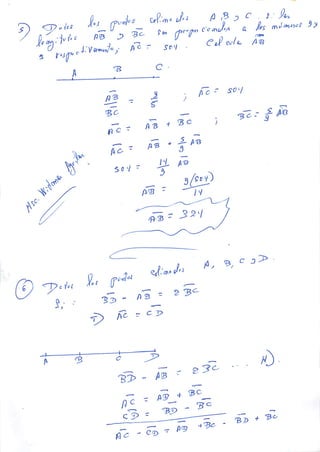 5) Dados los puntos colineales A, B, y C si las
longitudes AB y BC son proporcionales a los números 9 y
5 respectivamente; AC = 504. Calcule AB
A B C
AB/BC = 9/5 ; AC = 504
AC = AB + BC ; BC = 5/9 AB
AC = AB + 5/9 AB
504 = 14/9 AB
AB = 9(504)/14
AB = 324
6) Dados los puntos colineales A, B, C y D.
Si: BD - AB = 2BC
T) AC = CD
A B C D
BD - AB = 2BC ... H).
AC = AB + BC
CD = BD - BC
AC - CD = AB + BC - BD + BC